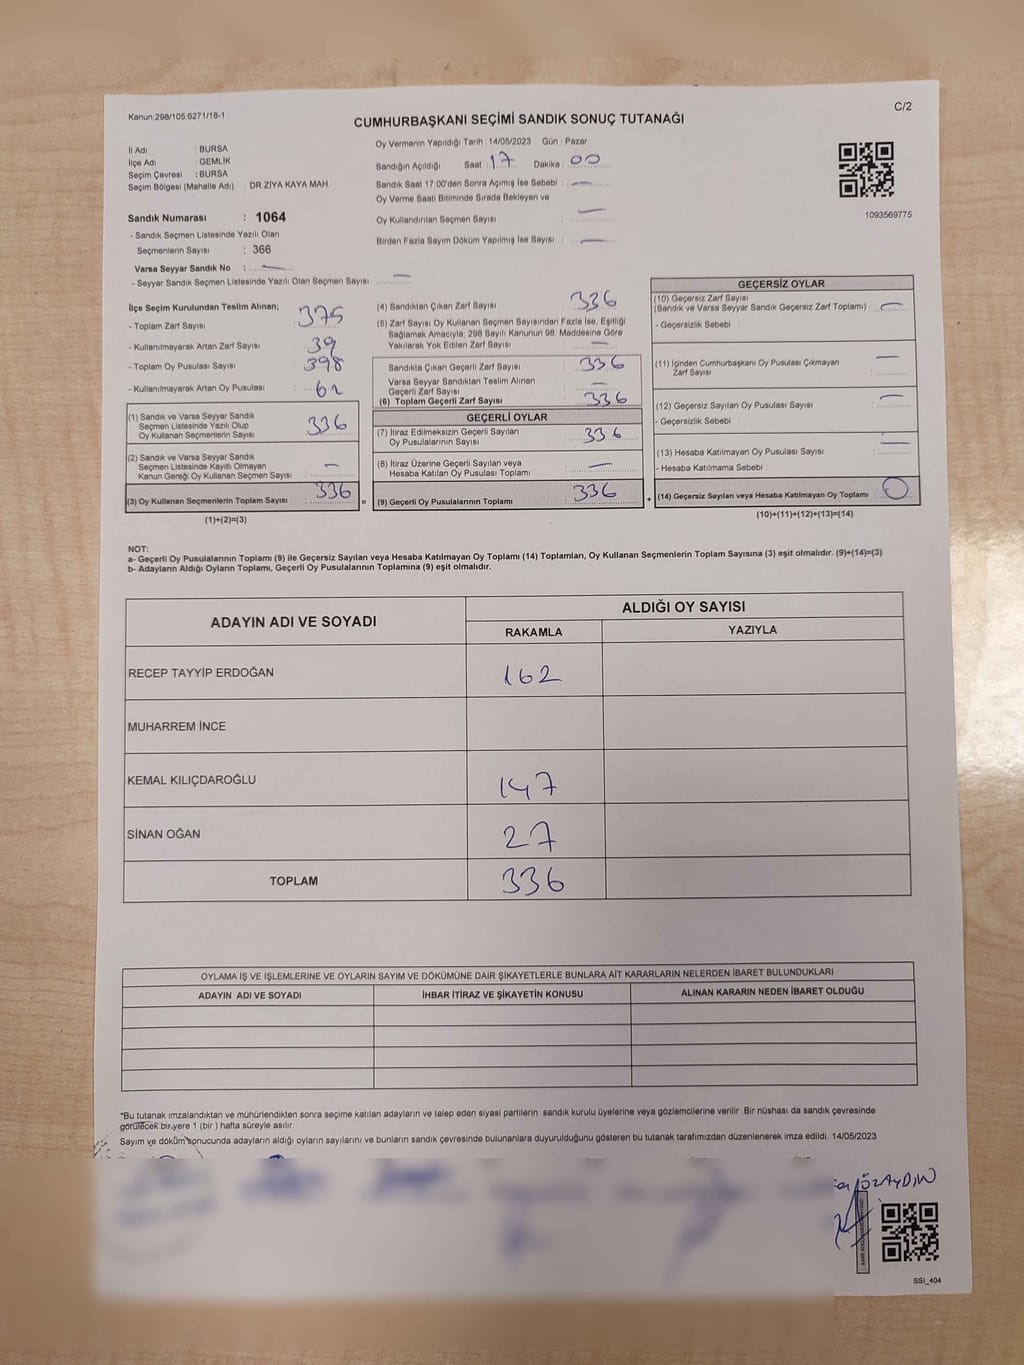 Kanun:298/105:6271/18-1
C/2
CUMHURBAŞKANI SEÇİMİ SANDIK SONUÇ TUTANAĞI
İl Adı : BURSA
İlçe Adı : GEMLİK
Seçim Çevresi : BURSA
Seçim Bölgesi (Mahalle Adı) : DR.ZIYA KAYA MAH.
Sandık Numarası : 1064
- Sandık Seçmen Listesinde Yazılı Olan
Seçmenlerin Sayısı : 366
Varsa Seyyar Sandık No : —
- Seyyar Sandık Seçmen Listesinde Yazılı Olan Seçmen Sayısı : —
Oy Vermenin Yapıldığı Tarih : 14/05/2023 Gün : Pazar
Sandığın Açıldığı Saat : 17 Dakika : 00
Sandık Saat 17.00'den Sonra Açımış İse Sebebi : —
Oy Verme Saati Bitiminde Sırada Bekleyen ve
Oy Kullandırılan Seçmen Sayısı : —
Birden Fazla Sayım Döküm Yapılmış İse Sayısı : —
1093569775
İlçe Seçim Kurulundan Teslim Alınan;
- Toplam Zarf Sayısı : 375
- Kullanılmayarak Artan Zarf Sayısı : 39
- Toplam Oy Pusulası Sayısı : 398
- Kullanılmayarak Artan Oy Pusulası : 62
(1) Sandık ve Varsa Seyyar Sandık
Seçmen Listesinde Yazılı Olup
Oy Kullanan Seçmenlerin Sayısı : 336
(2) Sandık ve Varsa Seyyar Sandık
Seçmen Listesinde Kayıtlı Olmayan
Kanun Gereği Oy Kullanan Seçmen Sayısı : —
(3) Oy Kullanan Seçmenlerin Toplam Sayısı : 336
(1)+(2)=(3)
(4) Sandıktan Çıkan Zarf Sayısı : 336
(5) Zarf Sayısı Oy Kullanan Seçmen Sayısından Fazla İse, Eşitliği
Sağlamak Amacıyla; 298 Sayılı Kanunun 98. Maddesine Göre
Yakılarak Yok Edilen Zarf Sayısı : —
Sandıkta Çıkan Geçerli Zarf Sayısı : 336
Varsa Seyyar Sandıktan Teslim Alınan
Geçerli Zarf Sayısı : —
(6) Toplam Geçerli Zarf Sayısı : 336
GEÇERLİ OYLAR
(7) İtiraz Edilmeksizin Geçerli Sayılan
Oy Pusulalarının Sayısı : 336
(8) İtiraz Üzerine Geçerli Sayılan veya
Hesaba Katılan Oy Pusulası Toplamı : —
= (9) Geçerli Oy Pusulalarının Toplamı : 336
GEÇERSİZ OYLAR
(10) Geçersiz Zarf Sayısı
(Sandık ve Varsa Seyyar Sandık Geçersiz Zarf Toplamı) : —
- Geçersizlik Sebebi :
(11) İçinden Cumhurbaşkanı Oy Pusulası Çıkmayan
Zarf Sayısı : —
(12) Geçersiz Sayılan Oy Pusulası Sayısı : —
- Geçersizlik Sebebi :
(13) Hesaba Katılmayan Oy Pusulası Sayısı : —
- Hesaba Katılmama Sebebi :
+ (14) Geçersiz Sayılan veya Hesaba Katılmayan Oy Toplamı : 0
(10)+(11)+(12)+(13)=(14)
NOT:
a- Geçerli Oy Pusulalarının Toplamı (9) ile Geçersiz Sayılan veya Hesaba Katılmayan Oy Toplamı (14) Toplamları, Oy Kullanan Seçmenlerin Toplam Sayısına (3) eşit olmalıdır. (9)+(14)=(3)
b- Adayların Aldığı Oyların Toplamı, Geçerli Oy Pusulalarının Toplamına (9) eşit olmalıdır.
ADAYIN ADI VE SOYADI
ALDIĞI OY SAYISI
RAKAMLA
YAZIYLA
RECEP TAYYİP ERDOĞAN 162
MUHARREM İNCE
KEMAL KILIÇDAROĞLU 147
SİNAN OĞAN 27
TOPLAM 336
OYLAMA İŞ VE İŞLEMLERİNE VE OYLARIN SAYIM VE DÖKÜMÜNE DAİR ŞİKAYETLERLE BUNLARA AİT KARARLARIN NELERDEN İBARET BULUNDUKLARI
ADAYIN ADI VE SOYADI
İHBAR İTİRAZ VE ŞİKAYETİN KONUSU
ALINAN KARARIN NEDEN İBARET OLDUĞU
*Bu tutanak imzalandıktan ve mühürlendikten sonra seçime katılan adayların ve talep eden siyasi partilerin sandık kurulu üyelerine veya gözlemcilerine verilir. Bir nüshası da sandık çevresinde
görülecek bir yere 1 (bir) hafta süreyle asılır.
Sayım ve döküm sonucunda adayların aldığı oyların sayılarını ve bunların sandık çevresinde bulunanlara duyurulduğunu gösteren bu tutanak tarafımızdan düzenlenerek imza edildi. 14/05/2023
ÖZAYDIN
SSI_404